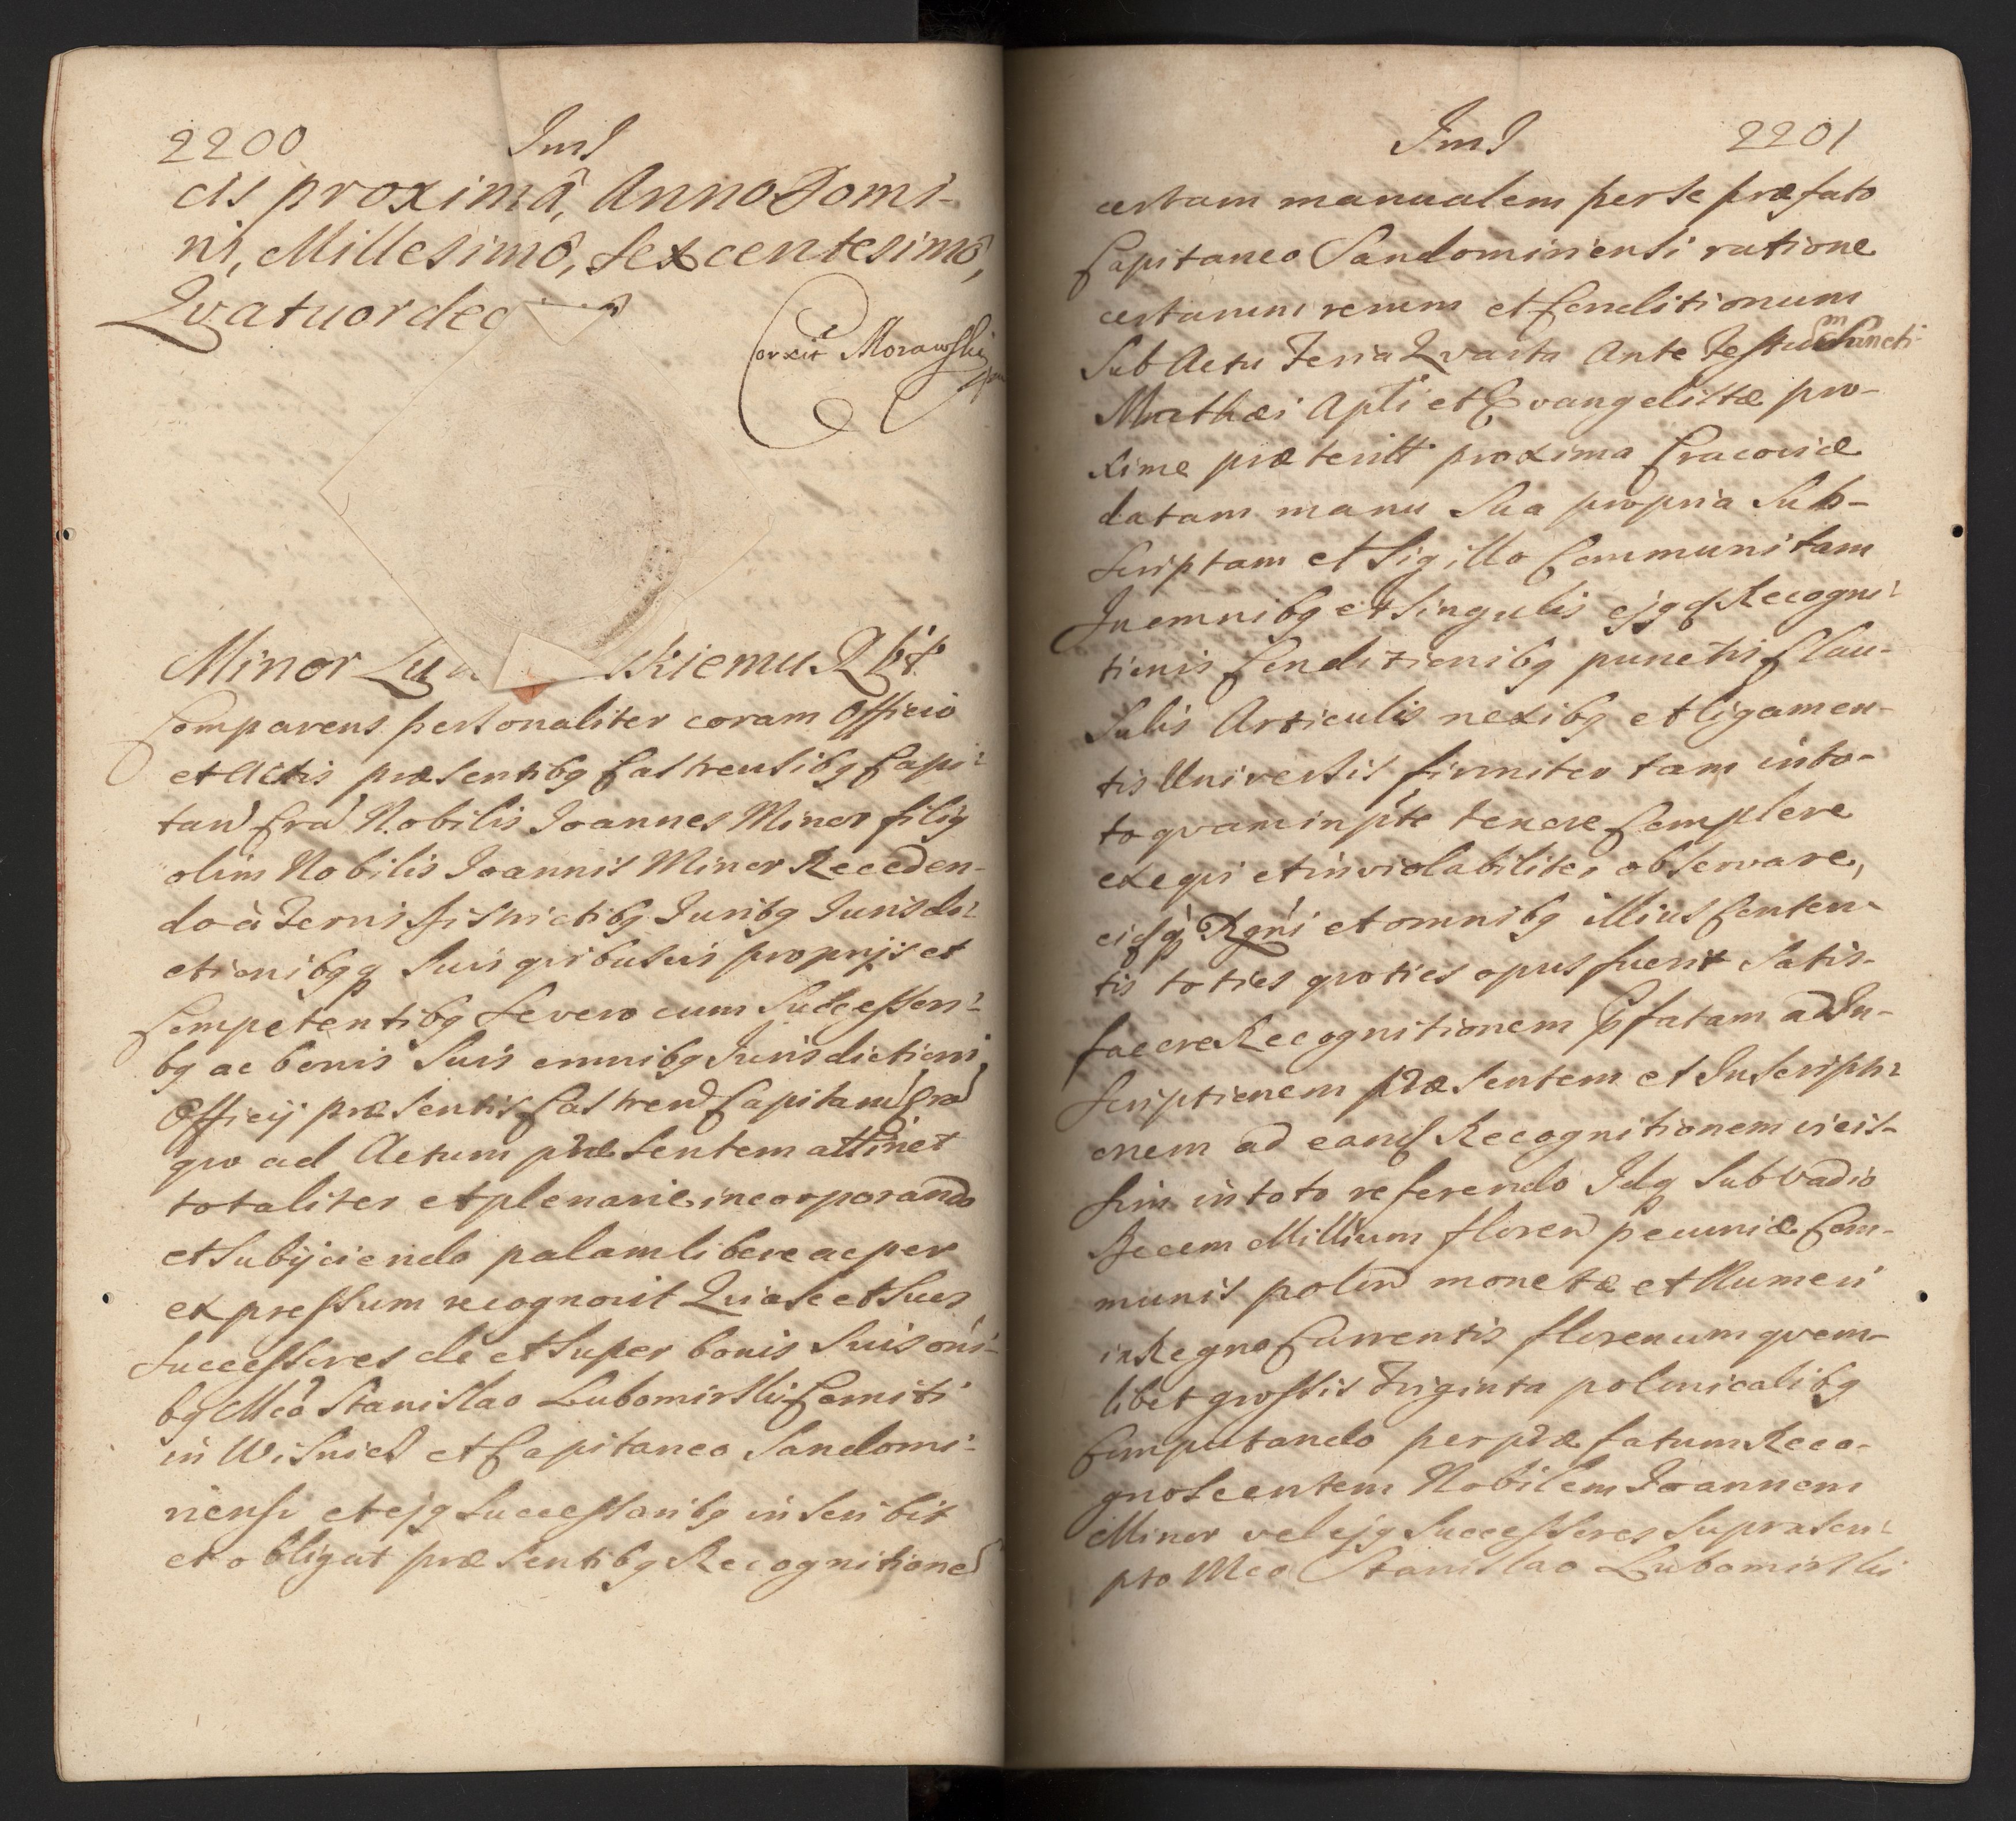 2200 Jnd
cis proximâ, Anno Domi-
ni, Millesimô, Sexcentesimô,
Qvatuordec
Corxit Morawski
Minor Lu skiemu Rbt
Comparens personaliter coram Officio
et Actis præsentibq Castrensibq Capi-
tan Cra Nobilis Joannes Minor filiq
olim Nobilis Joannis Minor Receden-
do à Terris Districtibq Juribq Jurisdi-
ctionibqq Suis qvibusvis proprijs et
Competentibq Severo cum Successori-
bq ac bonis Suis omnibq Jurisdictioni
Officij præsentis Castren Capitan Cra
qvo ad Actum præsentem attinet
totaliter et plenarie incorporando
et Subijciendo palam libere ac per
expressum recognovit Quia Se et Suos
Successores de et Super bonis Suis oni-
bq Mco Stanislao Lubomirski Comiti
in Wisnicz et Capitaneo Sandomi-
riensi et ejq Successoribq inscribit
et obligat præsentibq Recognitione
Jnd 2201
certam manualem per Se præfato
Capitaneo Sandomiriensi ratione
certarum rerum et Conditionum
Sub Actu Feria Qvarta Ante Festum Sancti
Mathæi Apli et Evangelistæ pro-
xime præteriti proxima Cracoviæ
datam manu Sua propria Sub-
scriptam et Sigillo Communitam
In omnibq et Singulis ejqd Recogni-
tionis Conditionibq punctis Clau-
sulis Articulis nexibq et ligamen-
tis Universis firmiter tam in to-
to qvam in pte tenere Complere
exeqvi et inviolabiliter observare,
eidq Rgni et omnibq illius Conten-
tis toties qvoties opus fuerit Satis-
facere Recognitionem Pfatam ad In-
scriptionem præsentem et Inscripti-
onem ad eand Recognitionem vicis-
sim in toto referendo Idq Sub Vadio
Decem Millium floren pecuniæ Com-
munis polon monetæ et Numeri
in Regno Currentis florenum qvem-
libet grossis Triginta polonicalibq
Computando per præfatum Reco-
gnoscentem Nobilem Joannem
Minor vel ejq Successores Suprascri-
pto Mco Stanislao Lubomirski